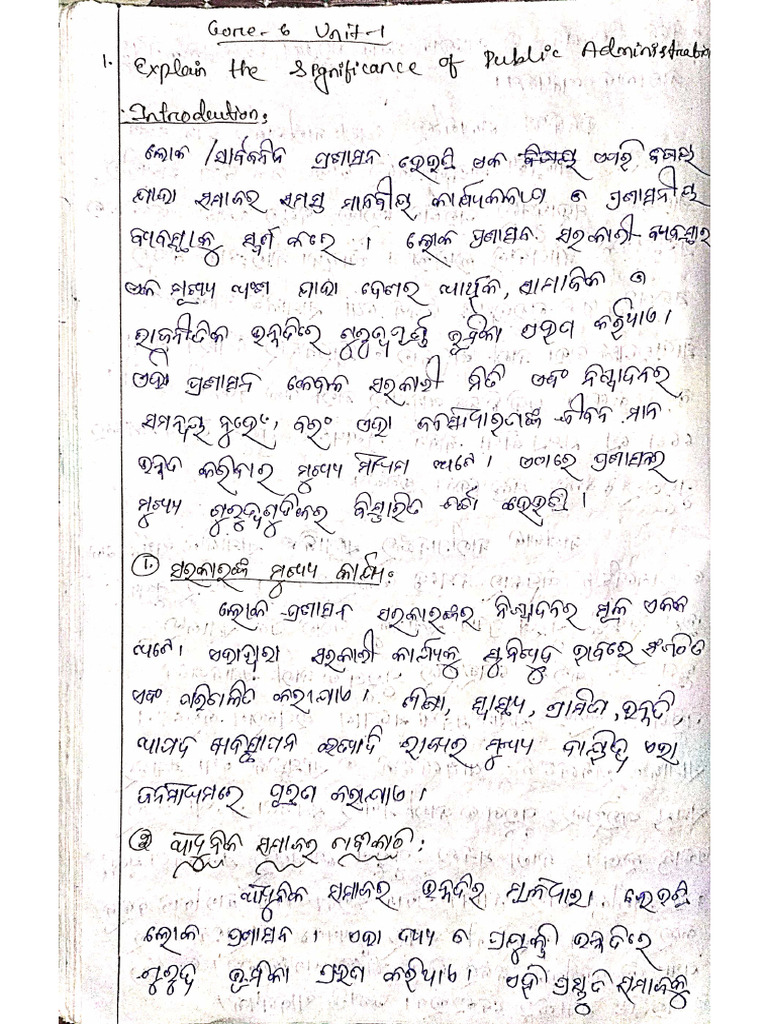 Core-6 Unit-1
1. Explain the Significance of Public Administration
Introduction:
ଲୋକ /ସାର୍ବଜନିନ ପ୍ରଶାସନ ହେଉଛି ଏକ ବିଷୟ ଏପରି ବିଷୟ
ଯାହା ସମାଜର ସମସ୍ତ ମାନବୀୟ କାର୍ଯ୍ୟକଳାପ ଓ ପ୍ରଶାସନୀୟ
ବ୍ୟବସ୍ଥାକୁ ସ୍ପର୍ଶ କରେ । ଲୋକ ପ୍ରଶାସନ ସରକାରୀ ବ୍ୟବସ୍ଥାର
ଏକ ମୁଖ୍ୟ ଅଂଶ ଯାହା ଦେଶର ଆର୍ଥିକ, ସାମାଜିକ ଓ
ରାଜନୀତିକ ଉନ୍ନତିରେ ଗୁରୁତ୍ୱପୂର୍ଣ୍ଣ ଭୂମିକା ଗ୍ରହଣ କରିଥାଏ ।
ଏହି ପ୍ରଶାସନ କେବଳ ସରକାରୀ ନିତି ଏବଂ ନିଷ୍ପାଦନର
ସମନ୍ୱୟ ନୁହେଁ, ବରଂ ଏହା ଜନସାଧାରଣଙ୍କ ଜୀବନ ମାନ
ଉନ୍ନତ କରିବାର ମୁଖ୍ୟ ମାଧ୍ୟମ ଅଟେ । ଏଠାରେ ପ୍ରଶାସନର
ମୁଖ୍ୟ ଗୁରୁତ୍ୱଗୁଡିକର ବିସ୍ତାରିତ ଚର୍ଚ୍ଚା ହେଉଛି ।
1. ସରକାରଙ୍କ ମୁଖ୍ୟ କାର୍ଯ୍ୟ:
ଲୋକ ପ୍ରଶାସନ ସରକାରଙ୍କର ନିଷ୍ପାଦନର ମୂଳ ଏକକ
ଅଟେ । ଏହାଦ୍ୱାରା ସରକାରୀ କାର୍ଯ୍ୟକୁ ସୁନିଶ୍ଚିତ ଭାବରେ ସଂଗଠିତ
ଏବଂ ପରିଚାଳିତ କରାଯାଏ । ଶିକ୍ଷା, ସ୍ୱାସ୍ଥ୍ୟ, ଗ୍ରାମିଣ, ଉନ୍ନତି,
ଆପଦ ବ୍ୟବସ୍ଥାପନ ଇତ୍ୟାଦି ରାଜ୍ୟର ମୁଖ୍ୟ ଦାୟିତ୍ୱ ଏହା
ମାଧ୍ୟମରେ ପୂରଣ କରାଯାଏ ।
2 ଆଧୁନିକ ସମାଜର
ଆଧୁନିକ ସମାଜର ଉନ୍ନତିର ମୂଳଧାରା ହେଉଛି
ଲୋକ ପ୍ରଶାସନ । ଏହା ତଥ୍ୟ ଓ ପ୍ରଯୁକ୍ତି ଉନ୍ନତିରେ
ଗୁରୁତ୍ୱ ଭୂମିକା ଗ୍ରହଣ କରିଥାଏ । ଏହି ପ୍ରଯୁକ୍ତି ସମାଜକୁ